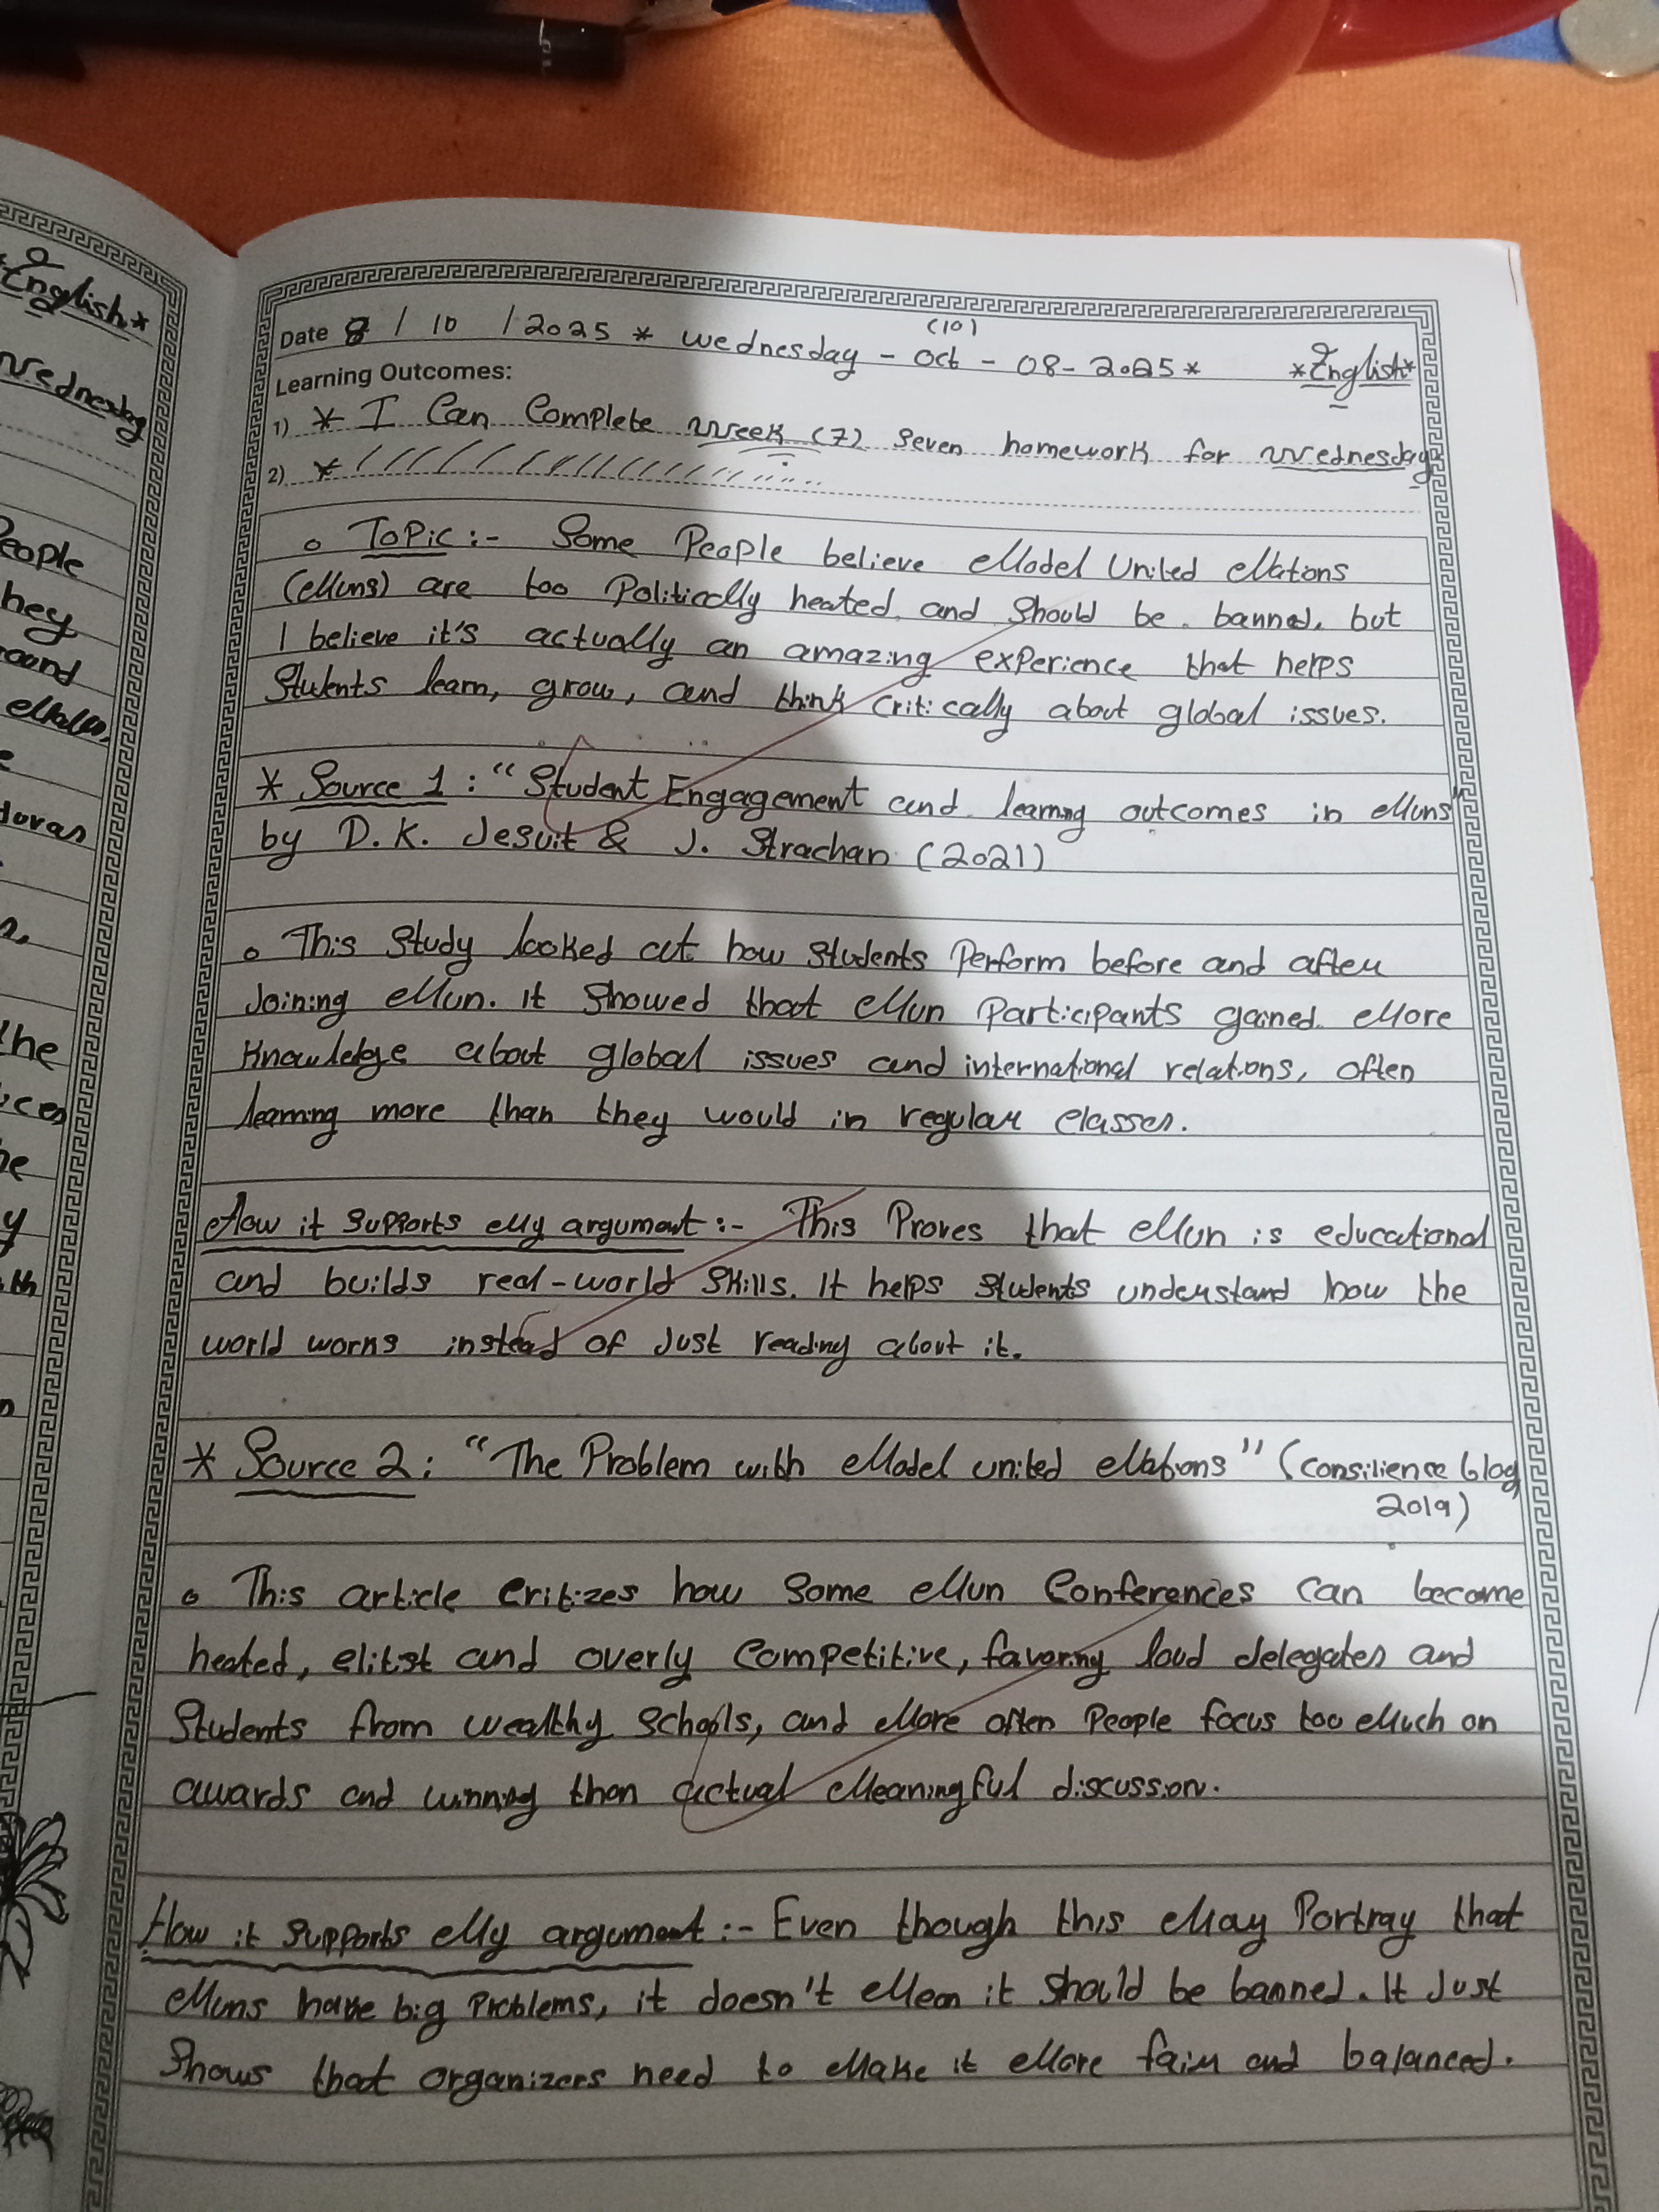 English*
Wednesday
People
they
the
Date 8 / 10 / 2025 * Wednesday - Oct - 08 - 2025 * *English*
(10)
Learning Outcomes:
1) * I Can Complete Week (7) Seven homework for Wednesday
2) *
o Topic :- Some People believe Model United Nations
(Muns) are too Politically heated, and Should be banned, but
I believe it's actually an amazing experience that helps
Students learn, grow, and think critically about global issues.
* Source 1 : "Student Engagement and learning outcomes in Muns"
by D.K. Jesuit & J. Strachan (2021)
o This Study looked at how Students Perform before and after
Joining Mun. It Showed that Mun Participants gained More
Knowledge about global issues and international relations, often
learning more than they would in regular Classes.
How it Supports My argument :- This Proves that Mun is educational
and builds real-world Skills. It helps Students understand how the
world works instead of Just reading about it.
* Source 2 : "The Problem with Model united Nations" (Consilience blog
2019)
o This article Critizes how Some Mun Conferences can become
heated, elitst and overly Competitive, favoring loud delegates and
Students from wealthy Schools, and More often People focus too Much on
awards and winning than actual Meaningful discussion.
How it Supports My argument :- Even though this May Portray that
Muns have big Problems, it doesn't Mean it Should be banned. It Just
Shows that organizers need to Make it More fair and balanced.